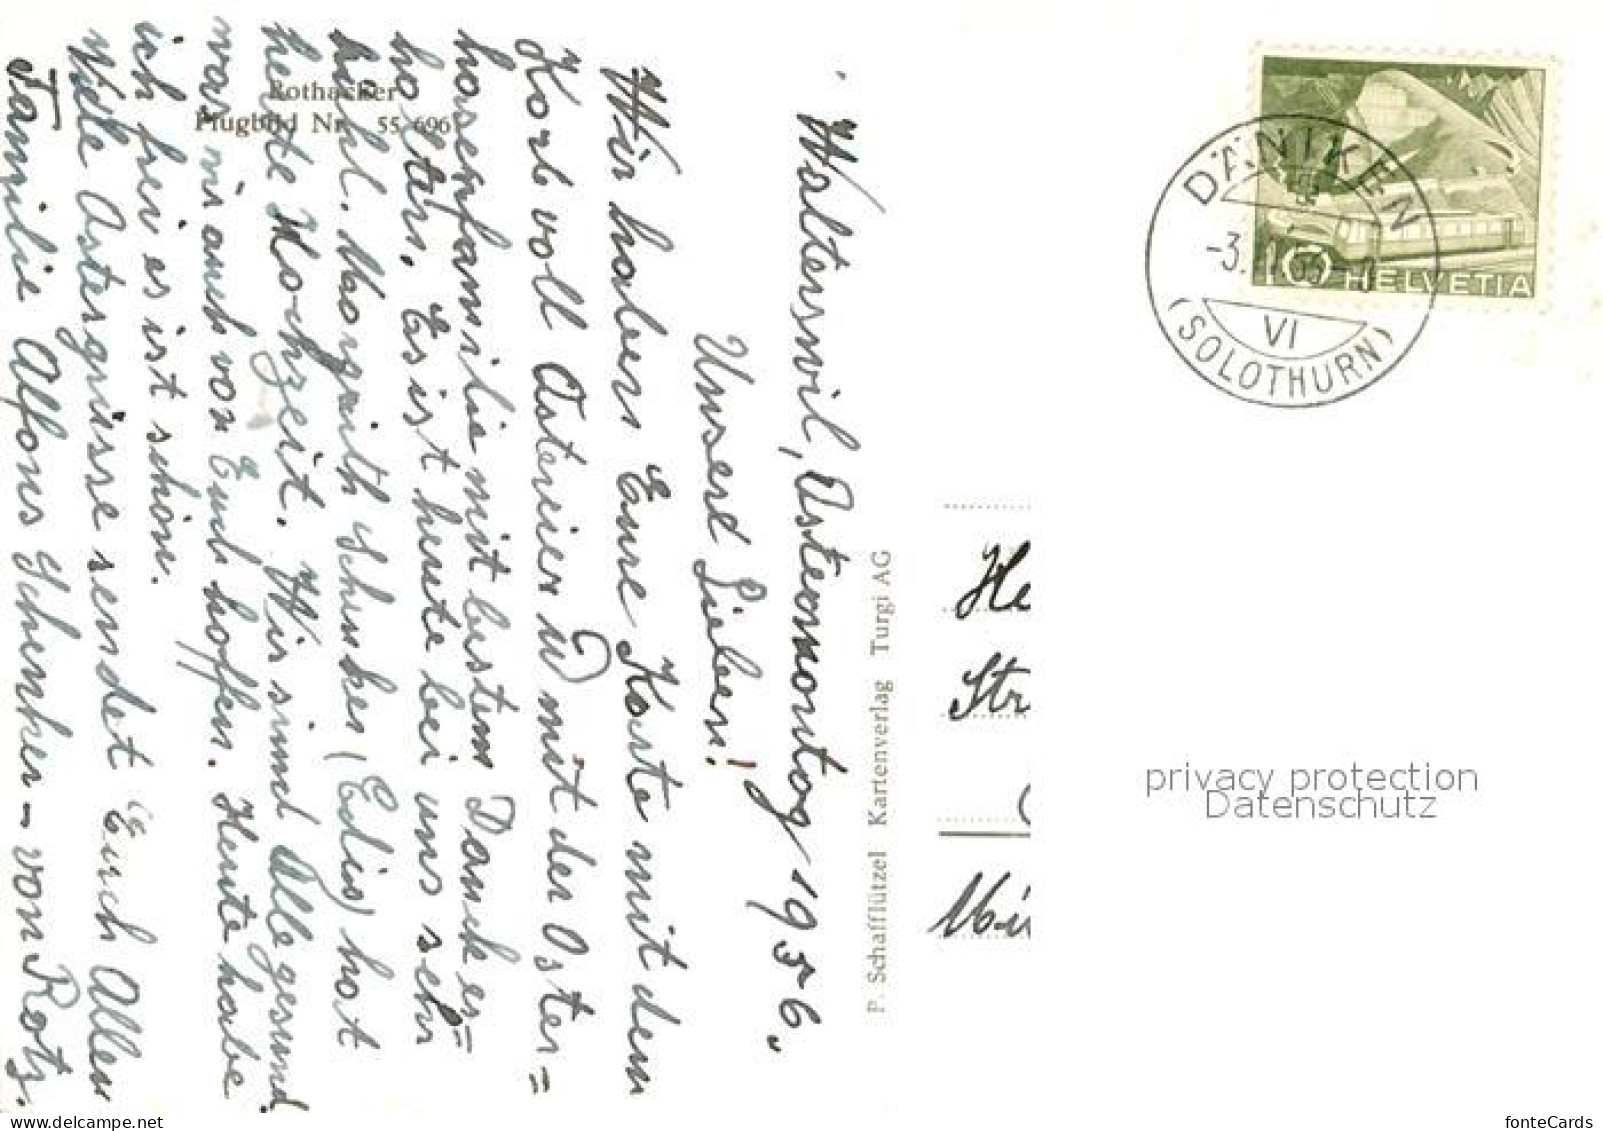 Walterswil, Ostermontag 1956.
Unsere Lieben!
Wir haben Eure Karte mit dem
Korb voll Ostereier u mit der Oster=
hasenfamilie mit bestem Dank er=
halten. Es ist heute bei uns sehr
kühl. Margrith Schenker (Edis) hat
heute Hochzeit. Wir sind Alle gesund
was wir auch von Euch hoffen. Heute habe
ich frei es ist schön.
Viele Ostergrüsse sendet Euch Allen
Familie Alfons Schenker - von Rotz.
Rothacker
Flugbild Nr. 55 696
P. Schafflützel Kartenverlag Turgi AG
HELVETIA
10
DÄNIKEN
VI
(SOLOTHURN)
He
Str
privacy protection
Datenschutz
fonteCards